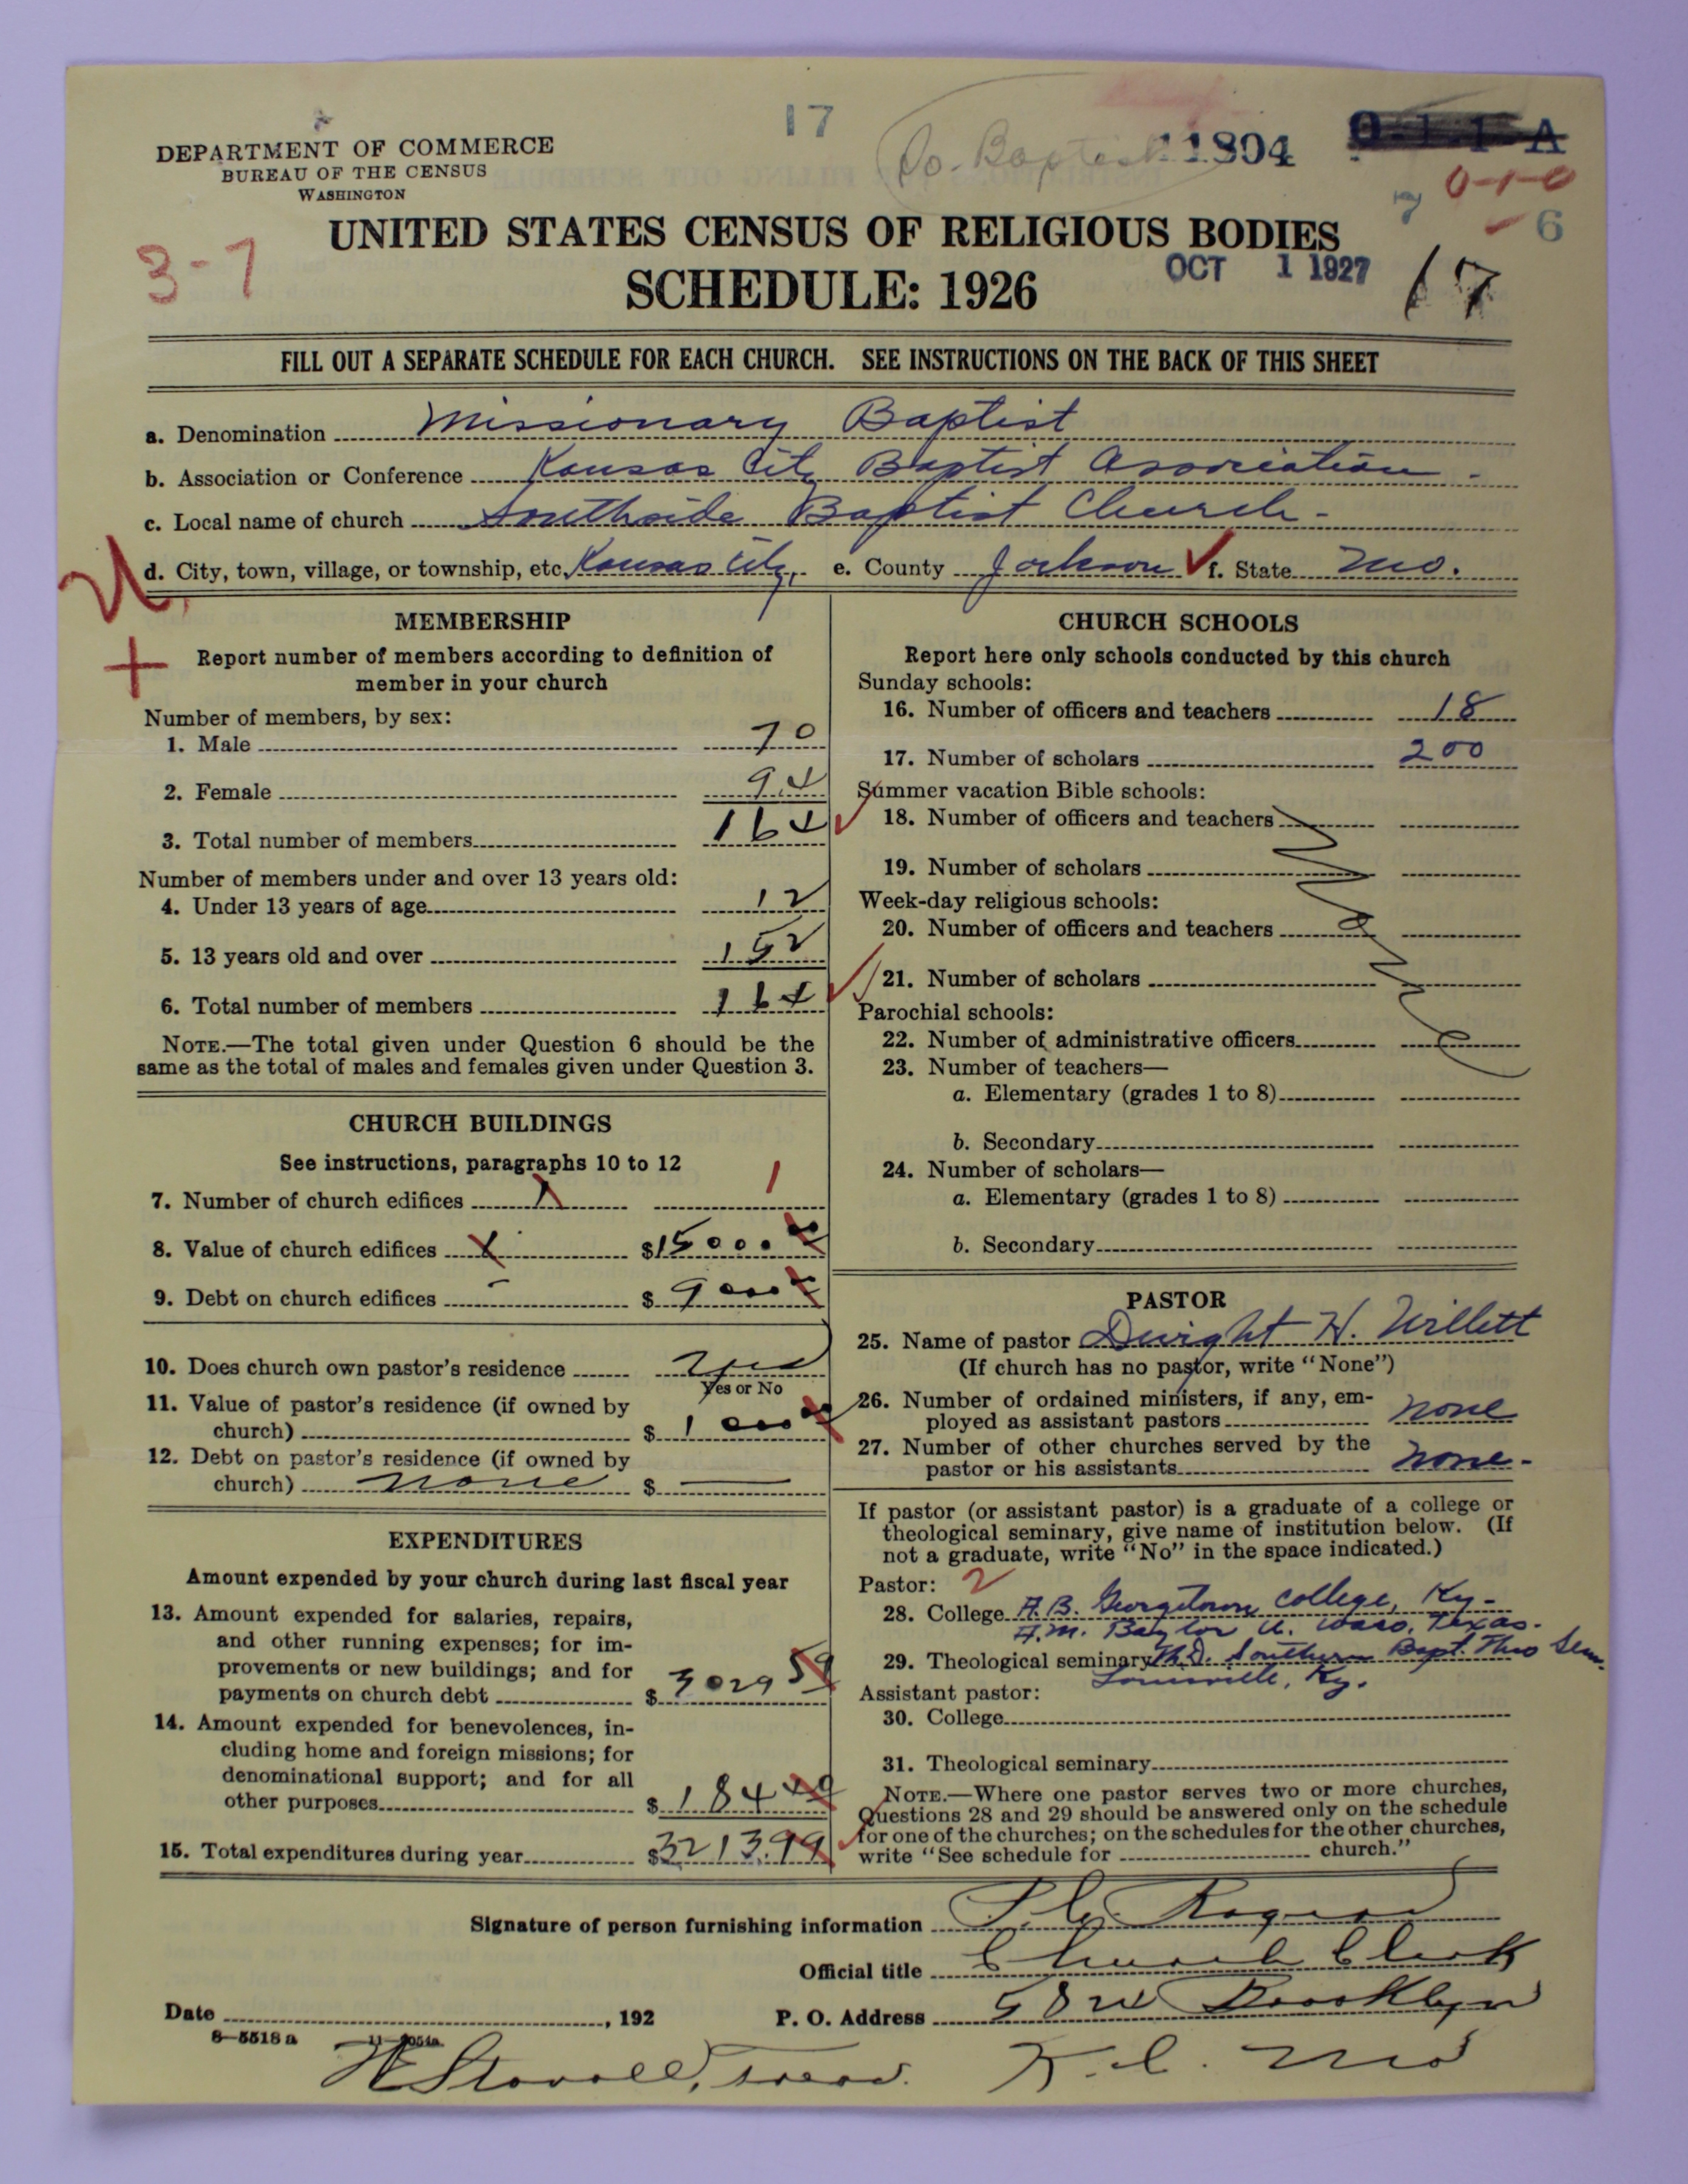 17
So. Baptist 11804
DEPARTMENT OF COMMERCE
BUREAU OF THE CENSUS
WASHINGTON
0-1-0
7 6
UNITED STATES CENSUS OF RELIGIOUS BODIES
3-7
SCHEDULE: 1926
OCT 1 1927
17
FILL OUT A SEPARATE SCHEDULE FOR EACH CHURCH. SEE INSTRUCTIONS ON THE BACK OF THIS SHEET
a. Denomination Missionary Baptist
b. Association or Conference Kansas City Baptist Association.
c. Local name of church Southside Baptist Church-
d. City, town, village, or township, etc. Kansas City, e. County Jackson f. State Mo.
MEMBERSHIP
Report number of members according to definition of
member in your church
Number of members, by sex:
1. Male 70
2. Female 94
3. Total number of members 164
Number of members under and over 13 years old:
4. Under 13 years of age 12
5. 13 years old and over 152
6. Total number of members 164
NOTE.—The total given under Question 6 should be the
same as the total of males and females given under Question 3.
CHURCH BUILDINGS
See instructions, paragraphs 10 to 12
7. Number of church edifices 1
8. Value of church edifices $15000.00
9. Debt on church edifices $ 9000
10. Does church own pastor's residence yes
Yes or No
11. Value of pastor's residence (if owned by
church) $ 1000
12. Debt on pastor's residence (if owned by
church) none $ —
EXPENDITURES
Amount expended by your church during last fiscal year
13. Amount expended for salaries, repairs,
and other running expenses; for im-
provements or new buildings; and for
payments on church debt $ 3029 59
14. Amount expended for benevolences, in-
cluding home and foreign missions; for
denominational support; and for all
other purposes $ 184 40
15. Total expenditures during year $3213.99
CHURCH SCHOOLS
Report here only schools conducted by this church
Sunday schools:
16. Number of officers and teachers 18
17. Number of scholars 200
Summer vacation Bible schools:
18. Number of officers and teachers
19. Number of scholars
Week-day religious schools:
20. Number of officers and teachers
21. Number of scholars
Parochial schools:
22. Number of administrative officers
23. Number of teachers—
a. Elementary (grades 1 to 8)
b. Secondary
24. Number of scholars—
a. Elementary (grades 1 to 8)
b. Secondary
PASTOR
25. Name of pastor Dwight H. Willett
(If church has no pastor, write "None")
26. Number of ordained ministers, if any, em-
ployed as assistant pastors none
27. Number of other churches served by the
pastor or his assistants none-
If pastor (or assistant pastor) is a graduate of a college or
theological seminary, give name of institution below. (If
not a graduate, write "No" in the space indicated.)
Pastor: 2
28. College A.B. Georgetown College, Ky-
A.M. Baylor U. Waco, Texas.
29. Theological seminary Th.D. Southern Bapt. Theo Sem.
Louisville, Ky.
Assistant pastor:
30. College
31. Theological seminary
NOTE.—Where one pastor serves two or more churches,
Questions 28 and 29 should be answered only on the schedule
for one of the churches; on the schedules for the other churches,
write "See schedule for church."
Signature of person furnishing information
Official title Church Clerk
Date , 192 P. O. Address Brooklyn
8-5518 a
Treas. K.C. Mo